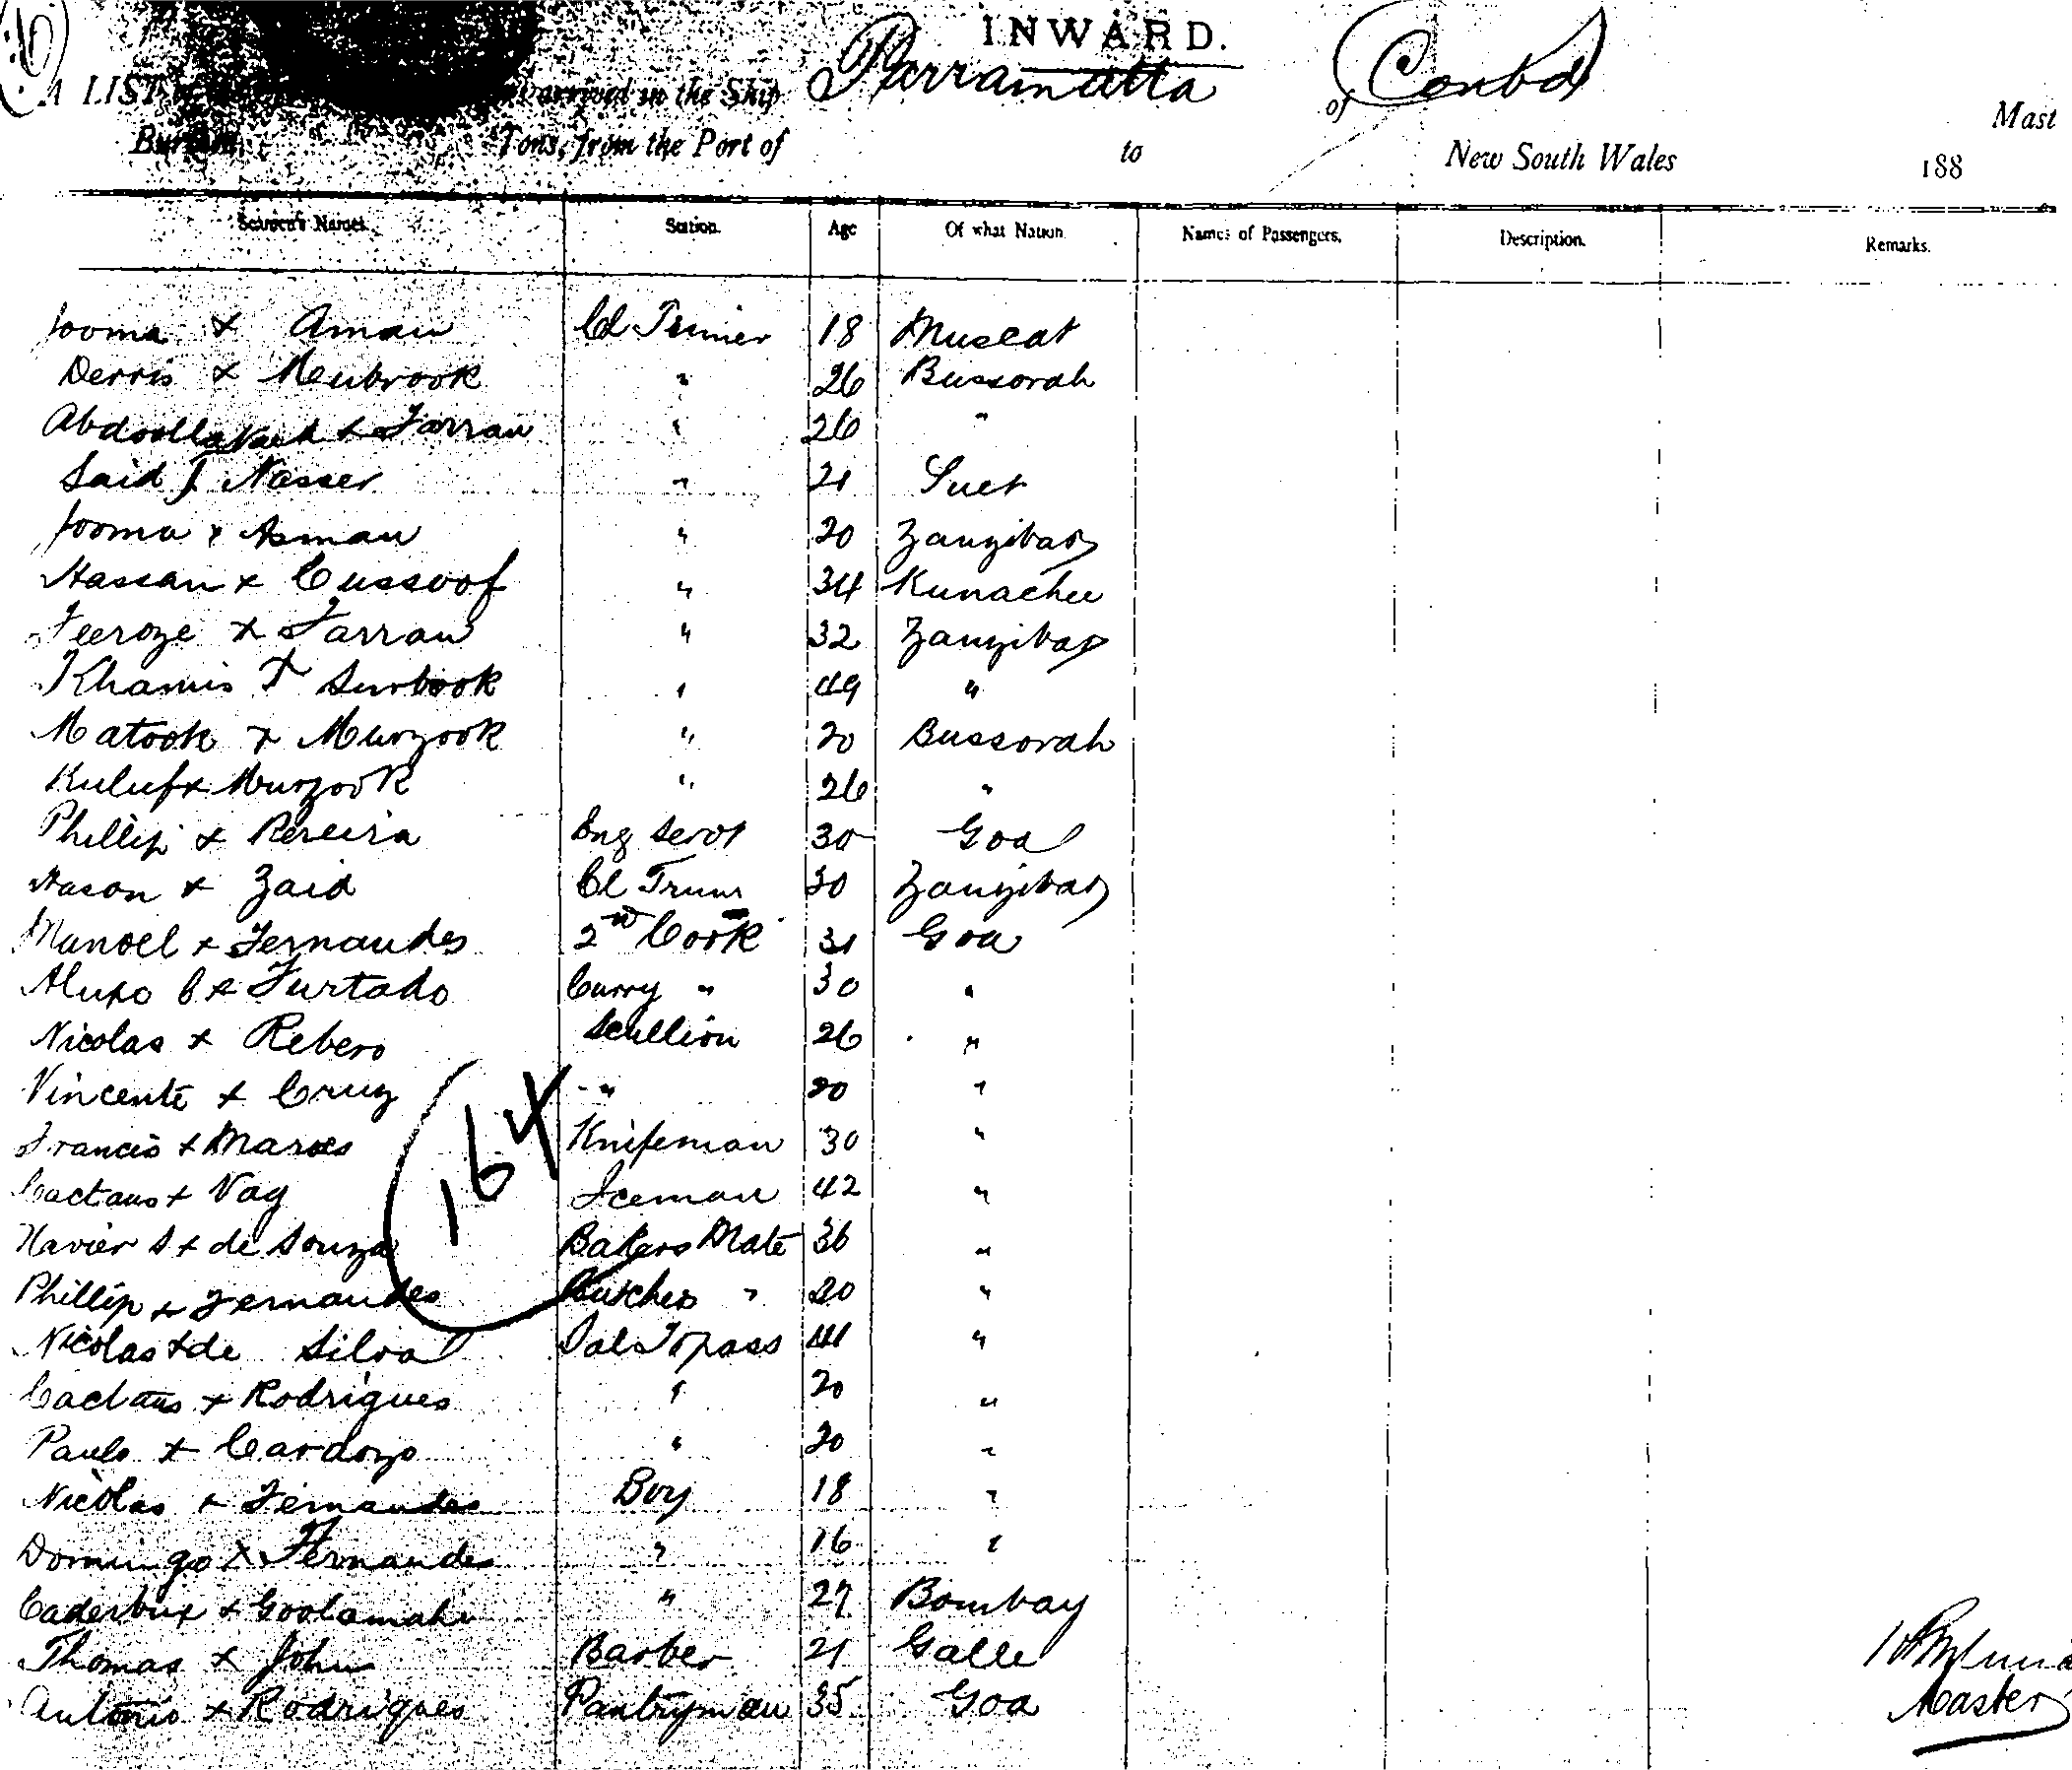 INWARD.
A LIST arrived in the Ship Parramatta of Contd Mast
Burthen, Tons, from the Port of to New South Wales 188
Seamen's Names. Station. Age Of what Nation. Names of Passengers. Description. Remarks.
Jooma x Aman Cl Trimer 18 Muscat
Derris x Mubrook " 26 Bussorah
Abdoolla x Farran " 26 "
Said x Nasser " 21 Suez
Jooma x Asman " 20 Zanzibar
Hassan x Cussoof " 34 Kurrachee
Feeroze x Farran " 32 Zanzibar
Khamis x Surbook " 49 "
Matook x Murzook " 20 Bussorah
Kuluf x Murzook " 26 "
Phillip x Pereira Eng Servt 30 Goa
Hason x Zaid Cl Trimr 30 Zanzibar
Manoel x Fernandes 2nd Cook 31 Goa
x Furtado Curry " 30 "
Nicolas x Rebero Scullion 26 "
Vincente x Cruz " 20 "
Francis x Knifeman 30 "
Caetano x Vaz Iceman 42 "
164
Xavier S x de Souza Bakers Mate 36 "
Phillip x Fernandes Butchers " 20 "
Nicolas x de Silva Topass 41 "
Caetano x Rodrigues " 20 "
Paulo x Cardozo " 20 "
Nicolas x Fernandes Boy 18 "
Domingo x Fernandes " 16 "
Caderbux x " 27 Bombay
Thomas x John Barber 21 Galle
Antonio x Rodrigues Pantryman 35 Goa
Master